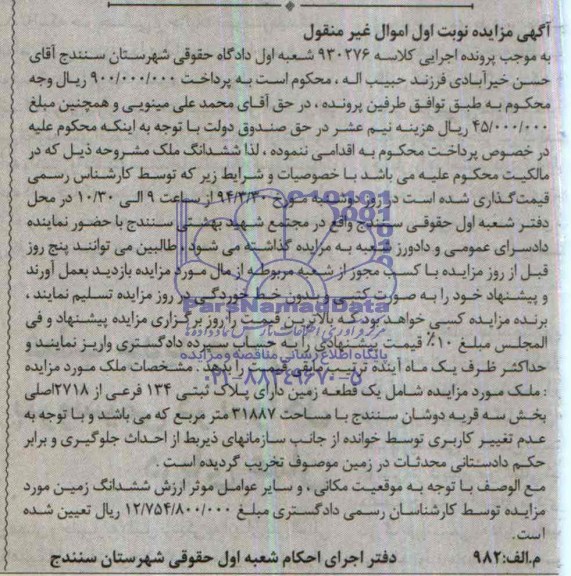 آگهی مزایده نوبت اول اموال غیر منقول
به موجب پرونده اجرایی کلاسه ۹۳۰۲۷۶ شعبه اول دادگاه حقوقی شهرستان سنندج آقای
حسن خیرآبادی فرزند حبیب اله ، محکوم است به پرداخت ۹۰۰/۰۰۰/۰۰۰ ریال وجه
محکوم به طبق توافق طرفین پرونده ، در حق آقای محمد علی مینویی و همچنین مبلغ
۴۵/۰۰۰/۰۰۰ ریال هزینه نیم عشر در حق صندوق دولت با توجه به اینکه محکوم علیه
در خصوص پرداخت محکوم به اقدامی ننموده ، لذا ششدانگ ملک مشروحه ذیل که در
مالکیت محکوم علیه می باشد با خصوصیات و شرایط زیر که توسط کارشناس رسمی
قیمت‌گذاری شده است در روز دوشنبه مورخ ۹۴/۳/۳۰ از ساعت ۹ الی ۱۰/۳۰ در محل
دفتر شعبه اول حقوقی سنندج واقع در مجتمع شهید بهشتی سنندج با حضور نماینده
دادسرای عمومی و دادورز شعبه به مزایده گذاشته می شود . طالبین می توانند پنج روز
قبل از روز مزایده با کسب مجوز از شعبه مربوطه از مال مورد مزایده بازدید بعمل آورند
و پیشنهاد خود را به صورت کتبی و بدون خط خوردگی در روز مزایده تسلیم نمایند ،
برنده مزایده کسی خواهد بود که بالاترین قیمت را روز برگزاری مزایده پیشنهاد و فی
المجلس مبلغ ۱۰٪ قیمت پیشنهادی را به حساب سپرده دادگستری واریز نمایند و
حداکثر ظرف یک ماه آینده ترتیب مابقی قیمت را بدهد . مشخصات ملک مورد مزایده
: ملک مورد مزایده شامل یک قطعه زمین دارای پلاک ثبتی ۱۳۴ فرعی از ۲۷۱۸اصلی
بخش سه قریه دوشان سنندج با مساحت ۳۱۸۸۷ متر مربع که می باشد و با توجه به
عدم تغییر کاربری توسط خوانده از جانب سازمانهای ذیربط از احداث جلوگیری و برابر
حکم دادستانی محدثات در زمین موصوف تخریب گردیده است .
مع الوصف با توجه به موقعیت مکانی ، و سایر عوامل موثر ارزش ششدانگ زمین مورد
مزایده توسط کارشناسان رسمی دادگستری مبلغ ۱۲/۷۵۴/۸۰۰/۰۰۰ ریال تعیین شده
است.
م.الف:۹۸۲ دفتر اجرای احکام شعبه اول حقوقی شهرستان سنندج
ParsNamadData
پایگاه اطلاع رسانی مناقصه و مزایده
۰۲۱-۸۸۳۴۹۶۷۰-۵